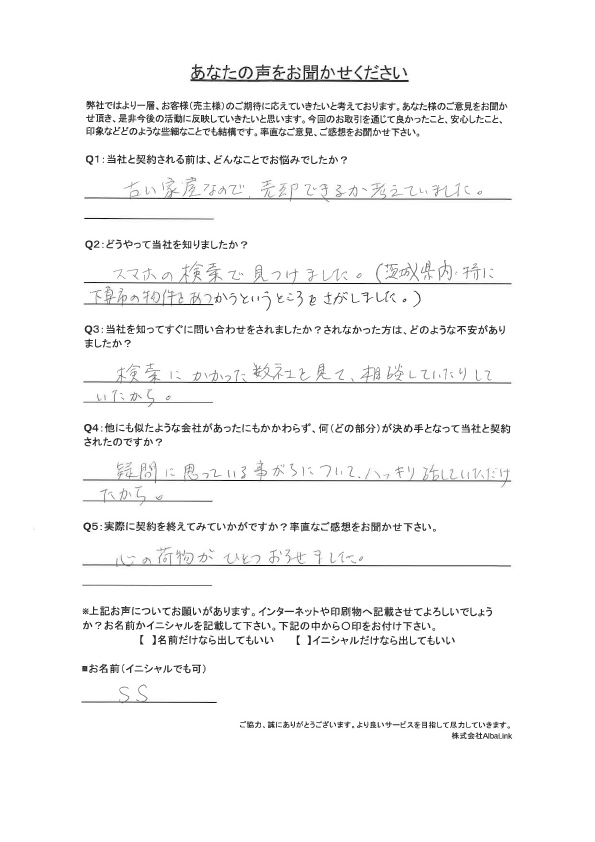 あなたの声をお聞かせください
弊社ではより一層、お客様(売主様)のご期待に応えていきたいと考えております。あなた様のご意見をお聞か
せ頂き、是非今後の活動に反映していきたいと思います。今回のお取引を通じて良かったこと、安心したこと、
印象などどのような些細なことでも結構です。率直なご意見、ご感想をお聞かせ下さい。
Q1:当社と契約される前は、どんなことでお悩みでしたか?
古い家屋なので、売却できるか考えていました。
Q2:どうやって当社を知りましたか?
スマホの検索で見つけました。(茨城県内・特に
下妻市の物件をあつかうというところをさがしました。)
Q3:当社を知ってすぐに問い合わせをされましたか?されなかった方は、どのような不安があり
ましたか?
検索にかかった数社を見て、相談していたりして
いたから。
Q4:他にも似たような会社があったにもかかわらず、何(どの部分)が決め手となって当社と契約
されたのですか?
疑問に思っている事がらについて、ハッキリ話していただけ
たから。
Q5:実際に契約を終えてみていかがですか?率直なご感想をお聞かせ下さい。
心の荷物がひとつおろせました。
※上記お声についてお願いがあります。インターネットや印刷物へ記載させてよろしいでしょう
か?お名前かイニシャルを記載して下さい。下記の中から○印をお付け下さい。
【 】名前だけなら出してもいい 【 】イニシャルだけなら出してもいい
■お名前(イニシャルでも可)
SS
ご協力、誠にありがとうございます。より良いサービスを目指して尽力していきます。
株式会社AlbaLink